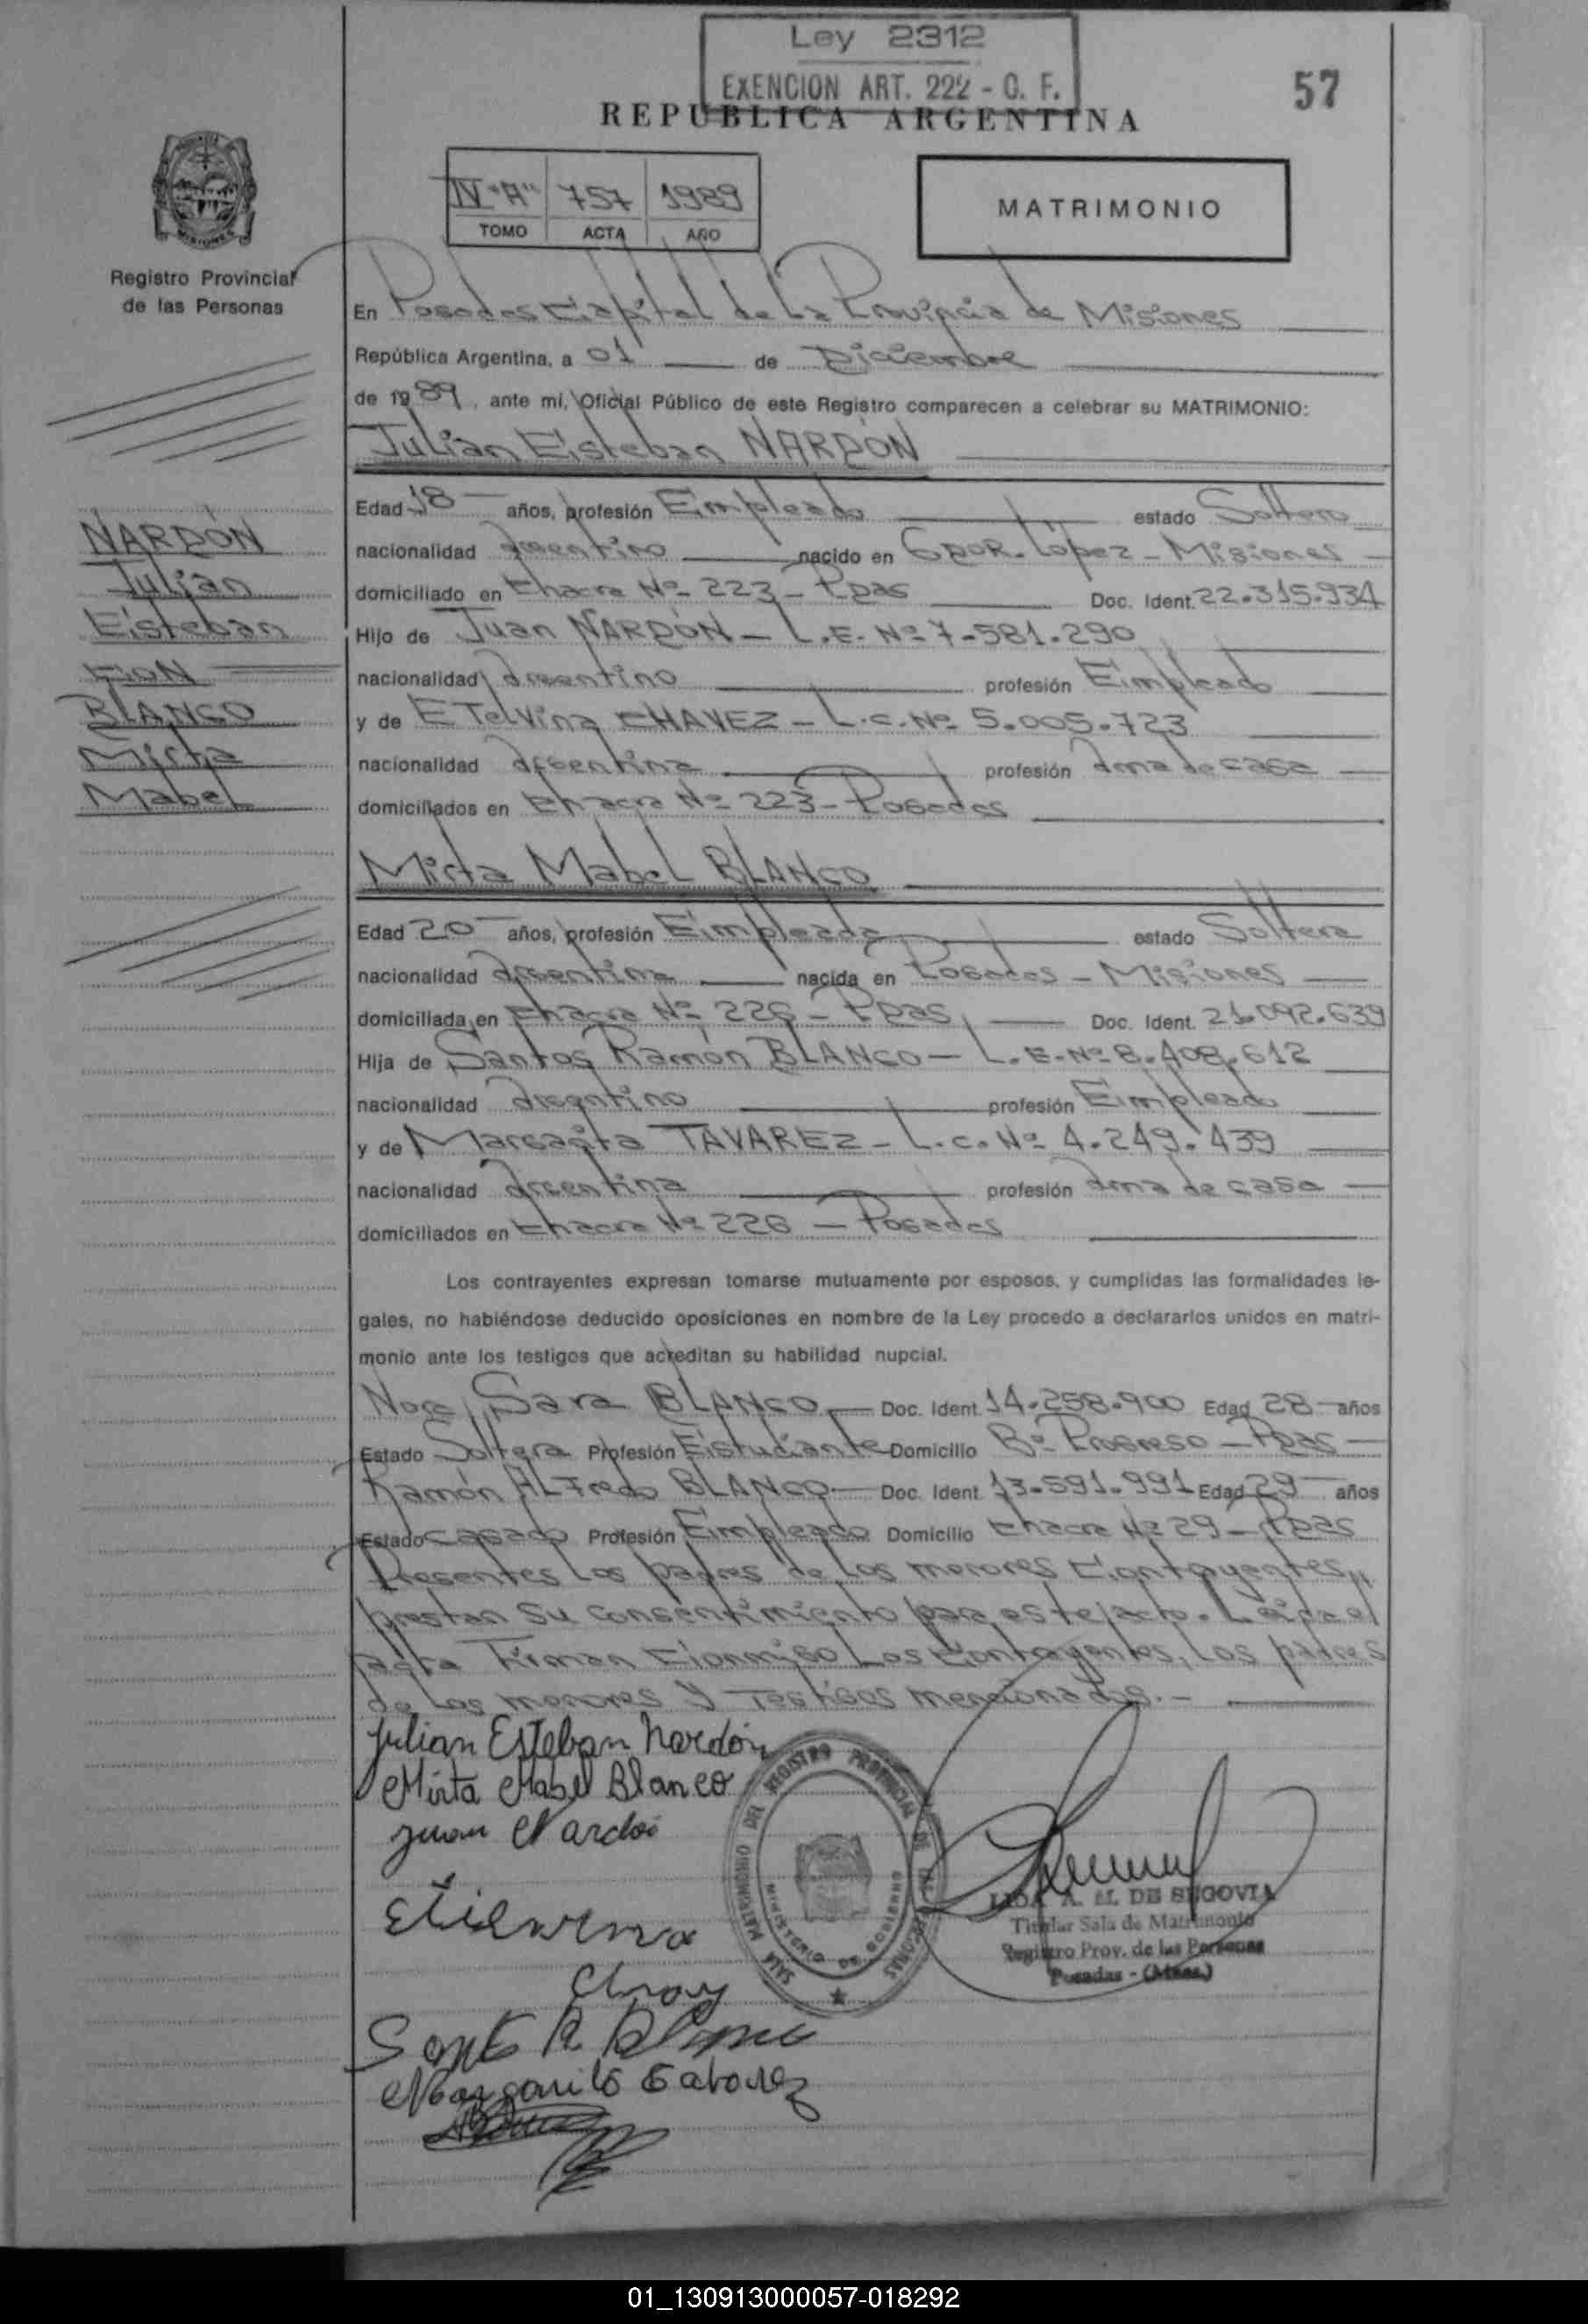 Ley 2312
EXENCION ART. 222 - C. F.
57
REPUBLICA ARGENTINA
IV "A" 757 1989
TOMO ACTA AÑO
MATRIMONIO
MISIONES
Registro Provincial
de las Personas
En Posadas Capital de La Provincia de Misiones
República Argentina, a 01 de Diciembre
de 1989, ante mí, Oficial Público de este Registro comparecen a celebrar su MATRIMONIO:
Julián Esteban NARDÓN
NARDÓN
Julián
Esteban
CON
BLANCO
Mirta
Mabel
Edad 18 años, profesión Empleado estado Soltero
nacionalidad argentino nacido en Gdor. López - Misiones
domiciliado en Chacra Nº 223 - Pdas Doc. Ident. 22.315.934
Hijo de Juan NARDÓN - L.E. Nº 7.581.290
nacionalidad argentino profesión Empleado
y de ETelvina CHAVEZ - L.C. Nº 5.005.723
nacionalidad argentina profesión ama de casa
domiciliados en Chacra Nº 223 - Posadas
Mirta Mabel BLANCO
Edad 20 años, profesión Empleada estado Soltera
nacionalidad argentina nacida en Posadas - Misiones
domiciliada en Chacra Nº 226 - Pdas Doc. Ident. 21.092.639
Hija de Santos Ramón BLANCO - L.E. Nº 8.408.612
nacionalidad argentino profesión Empleado
y de Margarita TAVAREZ - L.C. Nº 4.249.439
nacionalidad argentina profesión ama de casa
domiciliados en Chacra Nº 226 - Posadas
Los contrayentes expresan tomarse mutuamente por esposos, y cumplidas las formalidades le-
gales, no habiéndose deducido oposiciones en nombre de la Ley procedo a declararlos unidos en matri-
monio ante los testigos que acreditan su habilidad nupcial.
Nora Sara BLANCO Doc. Ident. 14.258.900 Edad 28 años
Estado Soltera Profesión Estudiante Domicilio Bº Progreso - Pdas
Ramón ALFredo BLANCO Doc. Ident. 13.591.991 Edad 29 años
Estado casado Profesión Empleado Domicilio Chacra Nº 29 - Pdas
Presentes Los padres de Los menores Contrayentes,
prestan su consentimiento para este acto. Leída el
acta Firman Conmigo Los Contrayentes, Los padres
de Los menores y Testigos mencionados.-
Julian Esteban Nardón
Mirta Mabel Blanco
Juan Nardon
Etelvina
Chavez
Santo R. Blanco
Margarita Tabarez
SALA MATRIMONIO DEL REGISTRO PROVINCIAL DE LAS PERSONAS
MINISTERIO DE GOBIERNO
A. M. DE SEGOVIA
Titular Sala de Matrimonio
Registro Prov. de las Personas
Posadas - (Mnes.)
01_130913000057-018292